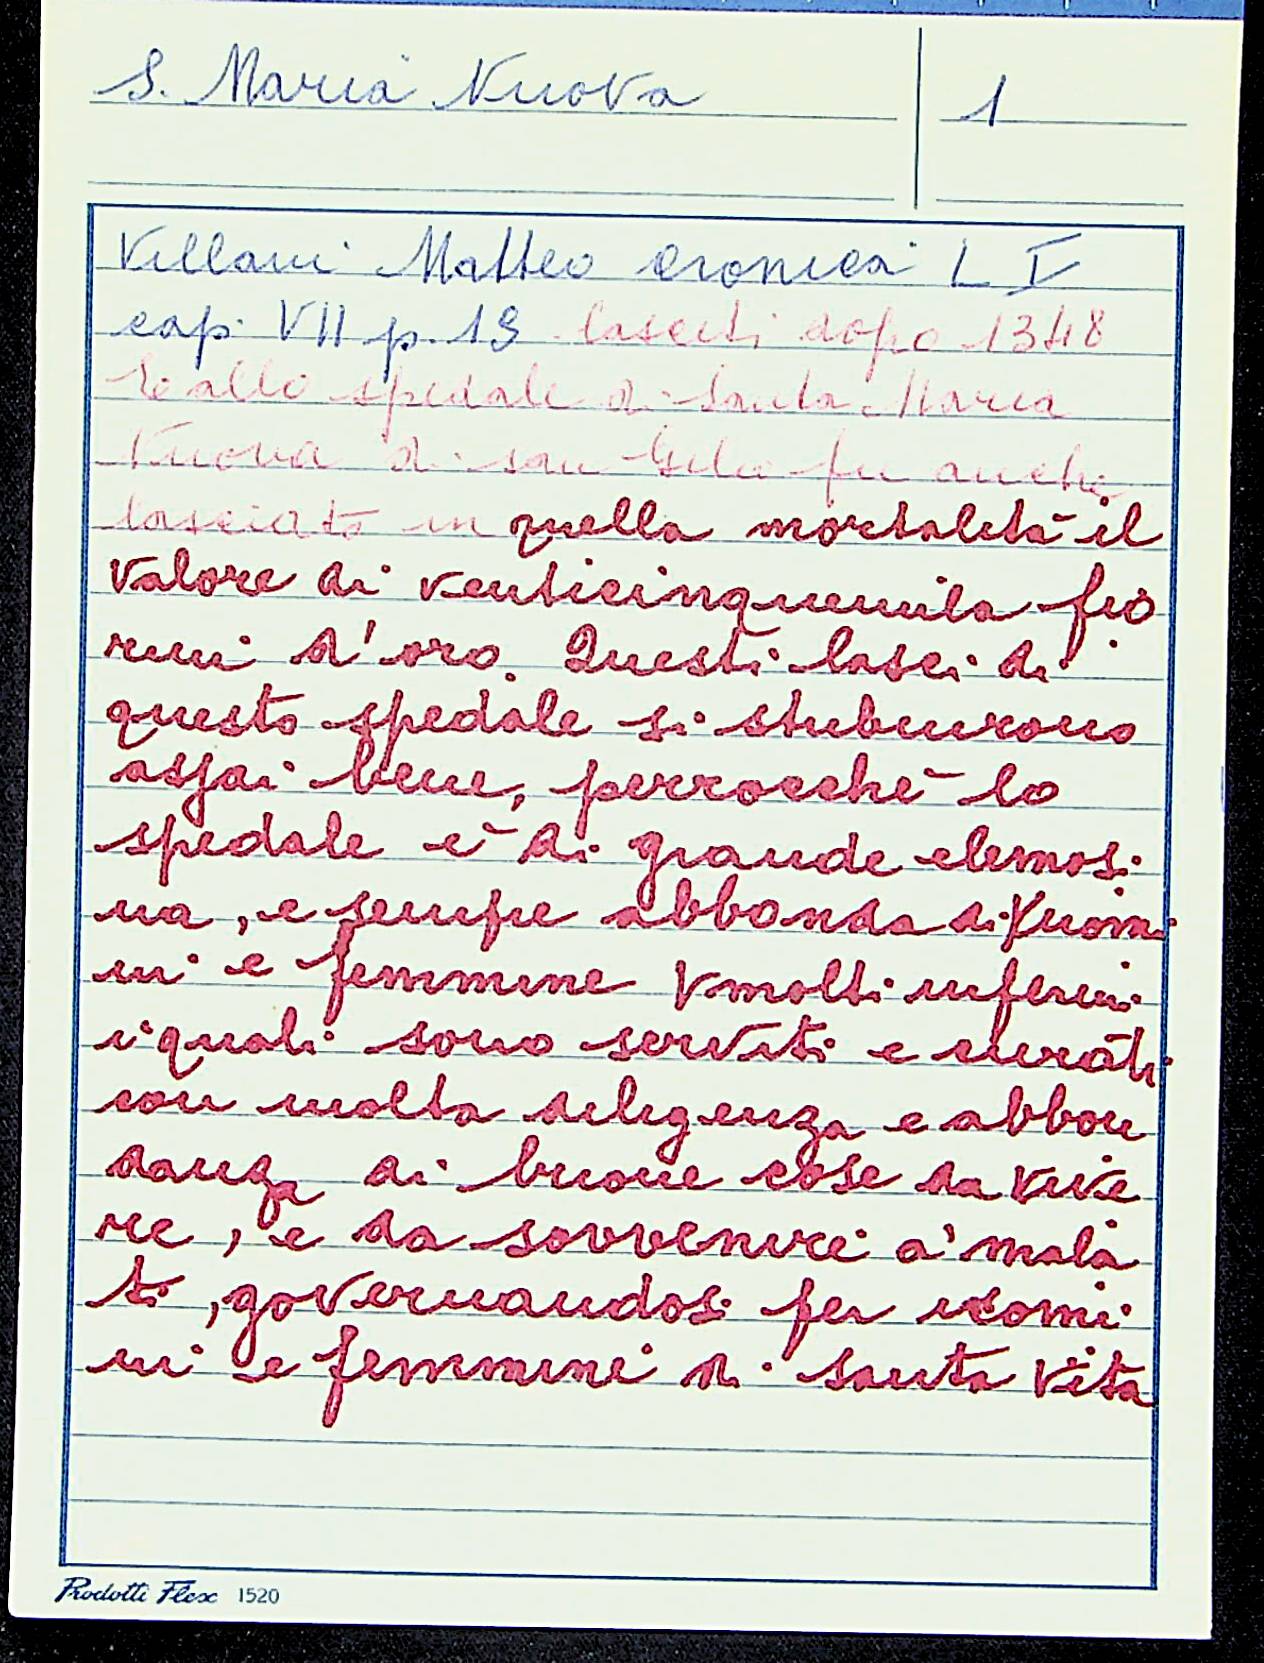 S. Maria Nuova
1
Villani Matteo Cronica L I
cap. VII p. 13 lasciti dopo 1348
E allo spedale di Santa Maria
Nuova di san Gilio fu anche
lasciato in quella mortalità il
valore di venticinquemila fio
rini d'oro. Questi lasci di
questo spedale si stribuirono
assai bene, perrocchè lo
spedale è di grande elemosi
na, e sempre abbonda di uomi
ni e femmine molti infermi
i quali sono serviti e curati
con molta diligenza e abbon
danza di buone cose da vive
re, e da sovvenire a' mala
ti, governandosi per uomi
ni e femmine di santa vita
Prodotti Flex 1520